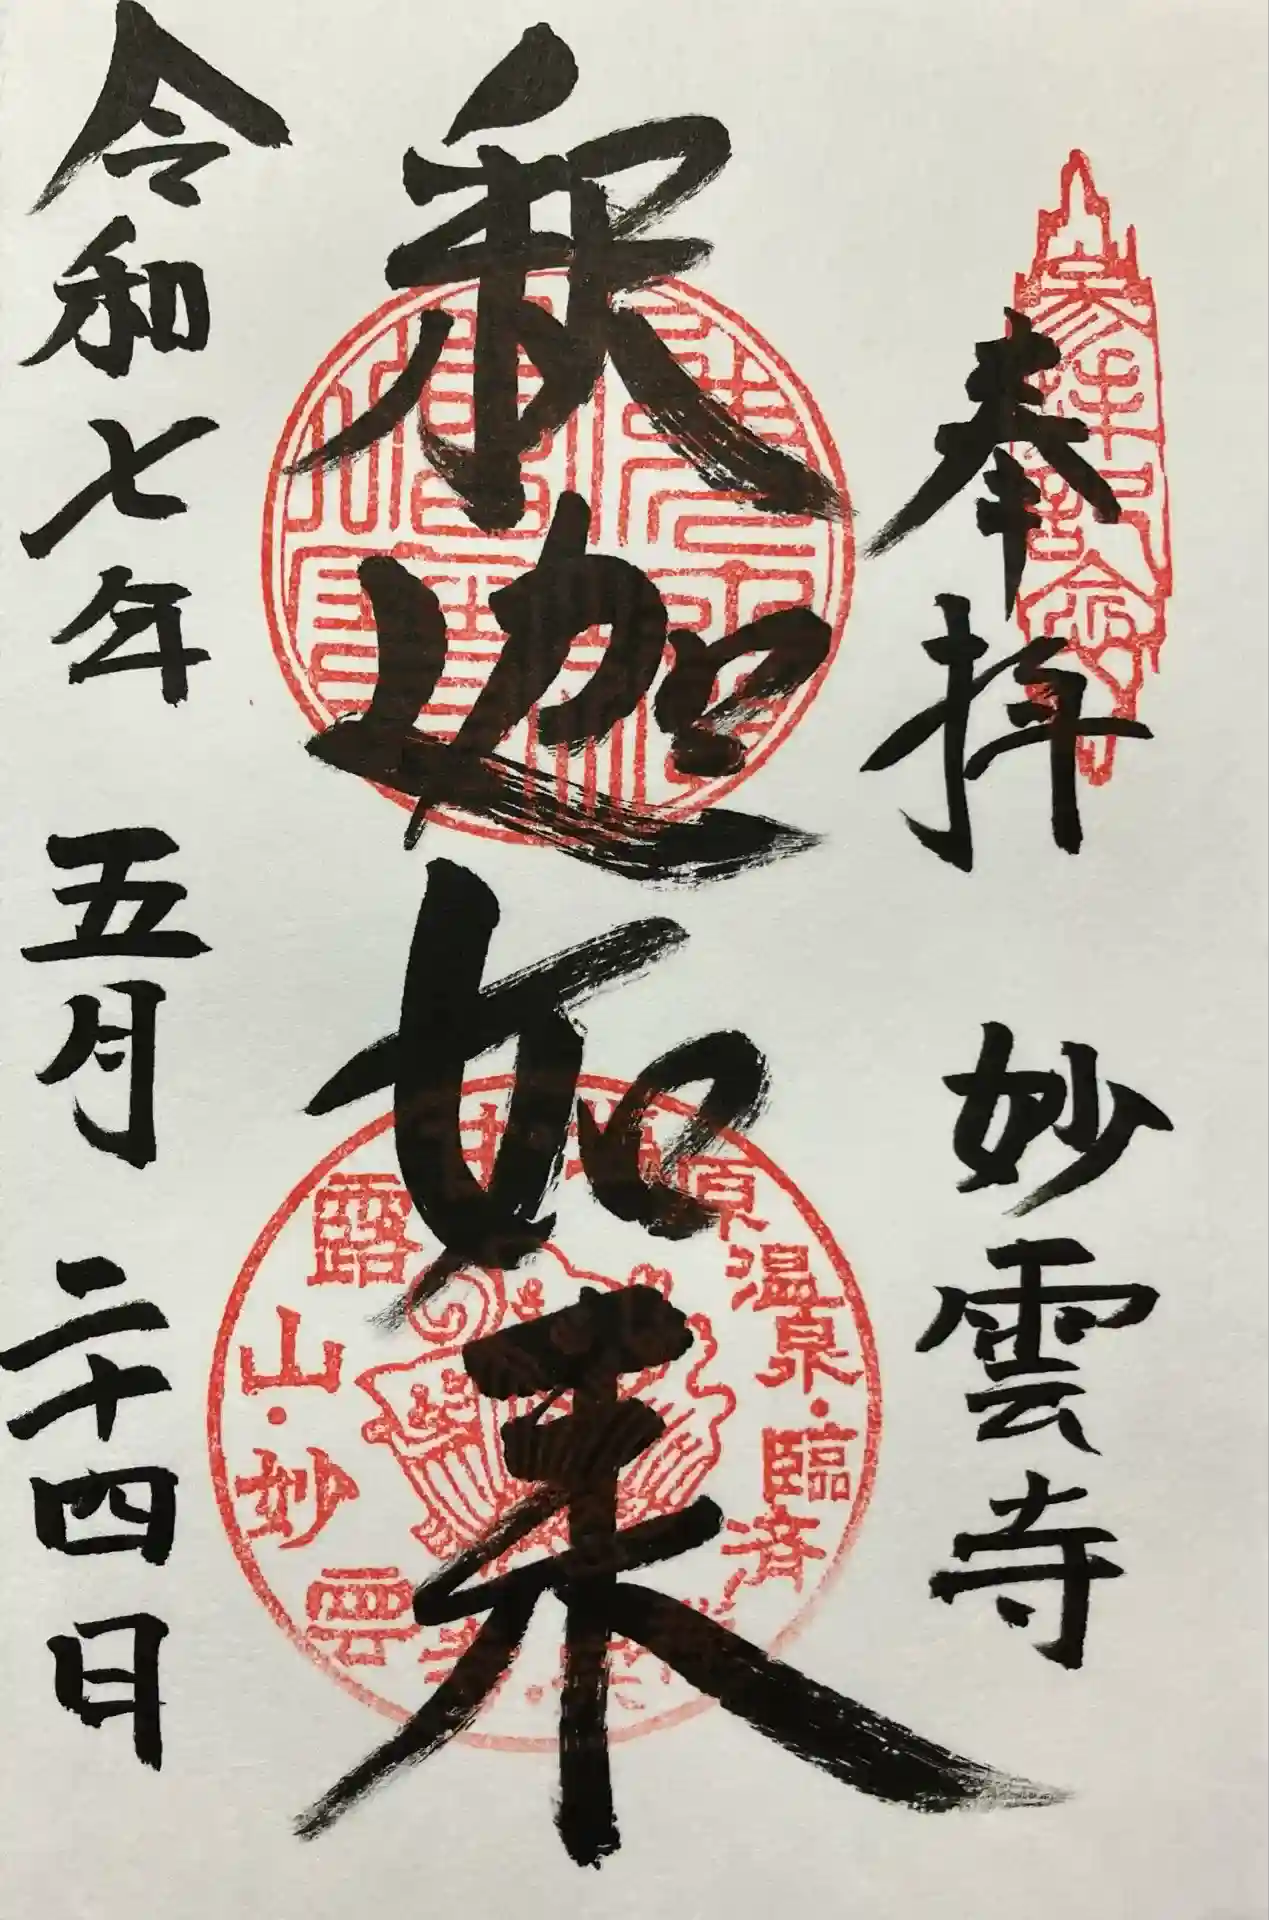 奉拝 妙雲寺
釈迦如来
令和七年 五月 二十四日
原温泉・臨済
甘露山・妙雲寺